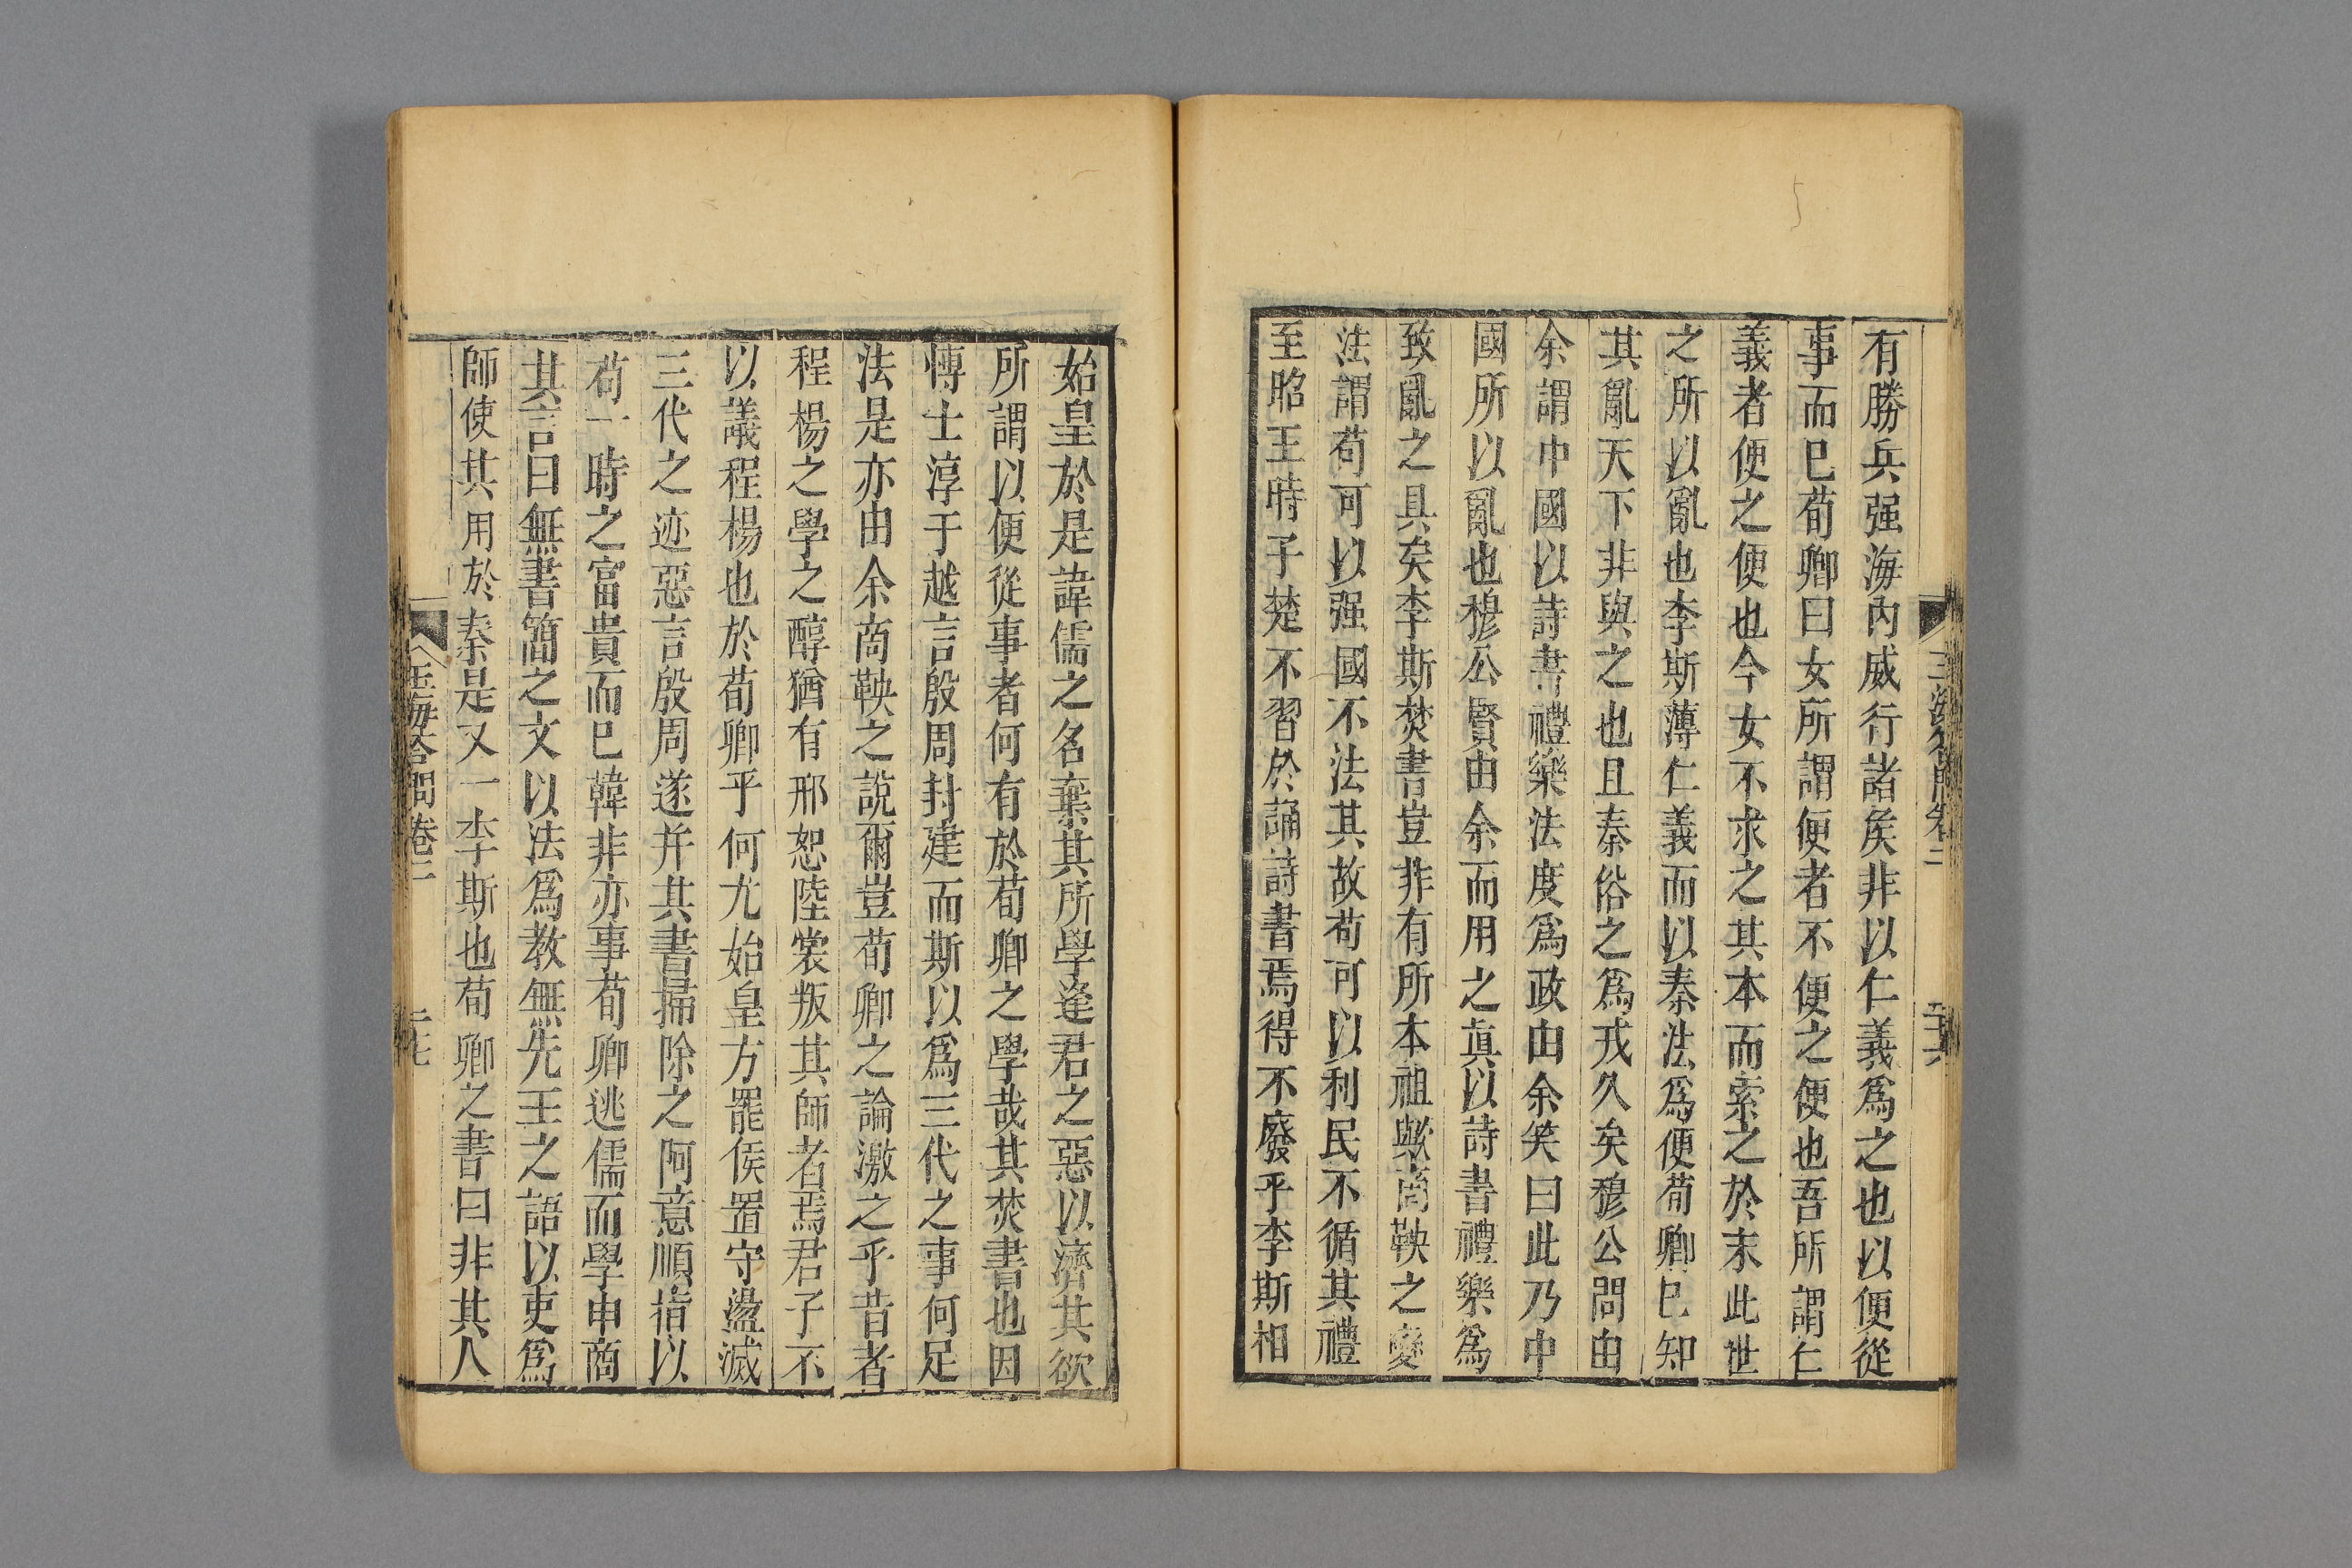 有勝兵强海內威行諸矦非以仁義爲之也以便從
事而已荀卿曰女所謂便者不便之便也吾所謂仁
義者便之便也今女不求之其本而索之於末此世
之所以亂也李斯薄仁義而以秦法爲便荀卿已知
其亂天下非與之也且秦俗之爲戎久矣穆公問由
余謂中國以詩書禮樂法度爲政由余笑曰此乃中
國所以亂也穆公賢由余而用之眞以詩書禮樂爲
致亂之具矣李斯焚書豈非有所本祖歟商鞅之變
法謂苟可以强國不法其故苟可以利民不循其禮
至昭王時子楚不習於誦詩書焉得不廢乎李斯相
始皇於是諱儒之名棄其所學逢君之惡以濟其欲
所謂以便從事者何有於荀卿之學哉其焚書也因
愽士淳于越言殷周封建而斯以爲三代之事何足
法是亦由余商鞅之說爾豈荀卿之論激之乎昔者
程楊之學之醇猶有邢恕陸棠叛其師者焉君子不
以議程楊也於荀卿乎何尤始皇方罷侯置守盪滅
三代之迹惡言殷周遂并其書掃除之阿意順指以
苟一時之富貴而已韓非亦事荀卿逃儒而學申商
其言曰無書簡之文以法爲教無先王之語以吏爲
師使其用於秦是又一李斯也荀卿之書曰非其人
玉海荅問卷二
二七